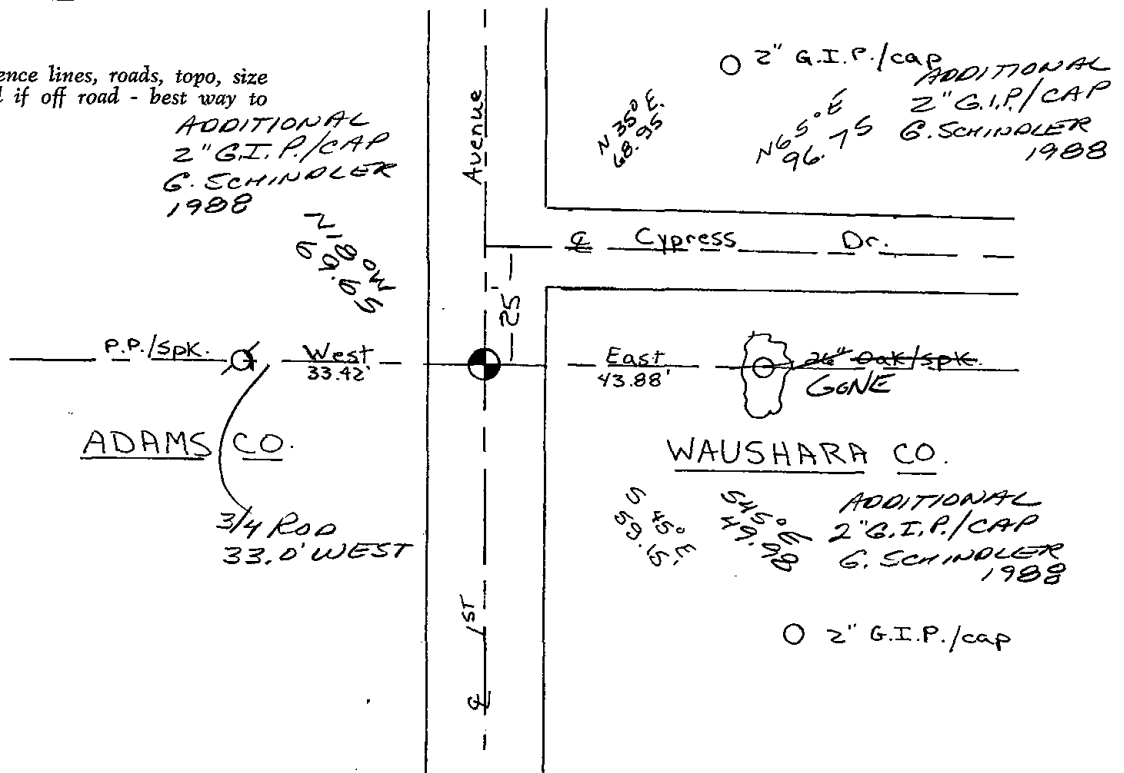 ence lines, roads, topo, size
if off road - best way to
ADDITIONAL
2" G.I.P./CAP
G. SCHINDLER
1988
N18°W
69.65
Avenue
N 35° E.
68.95
2" G.I.P./cap
ADDITIONAL
2" G.I.P./CAP
G. SCHINDLER
1988
N65°E
96.75
℄ Cypress Dr.
25'
P.P./Spk.
West
33.42'
East
43.88'
26" Oak/spk.
GONE
ADAMS CO.
WAUSHARA CO.
3/4 ROD
33.0' WEST
S 45° E.
59.15.
S45°E
49.98
ADDITIONAL
2" G.I.P./CAP
G. SCHINDLER
1988
℄ 1ST
2" G.I.P./cap